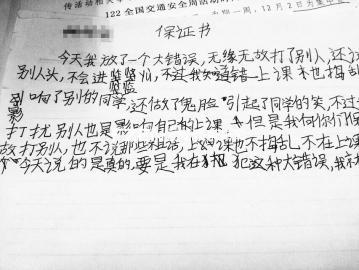 传活动和大
122全国交通安全周活动时
周一,12月2日为集中
保证书
今天我放了一个大错误,无缘无故打了别人,还
别人头,不会进监监狱,不过我知道错上课也捣乱
影响了别的同学,还做了鬼脸引起了同学的笑,不过
打扰别人也是影响自己的上课,但是我向你们保
故打别人,也不说那些粗话,上课也不捣乱不在上课
今天说的是真的,要是我在犯犯这种大错误,我